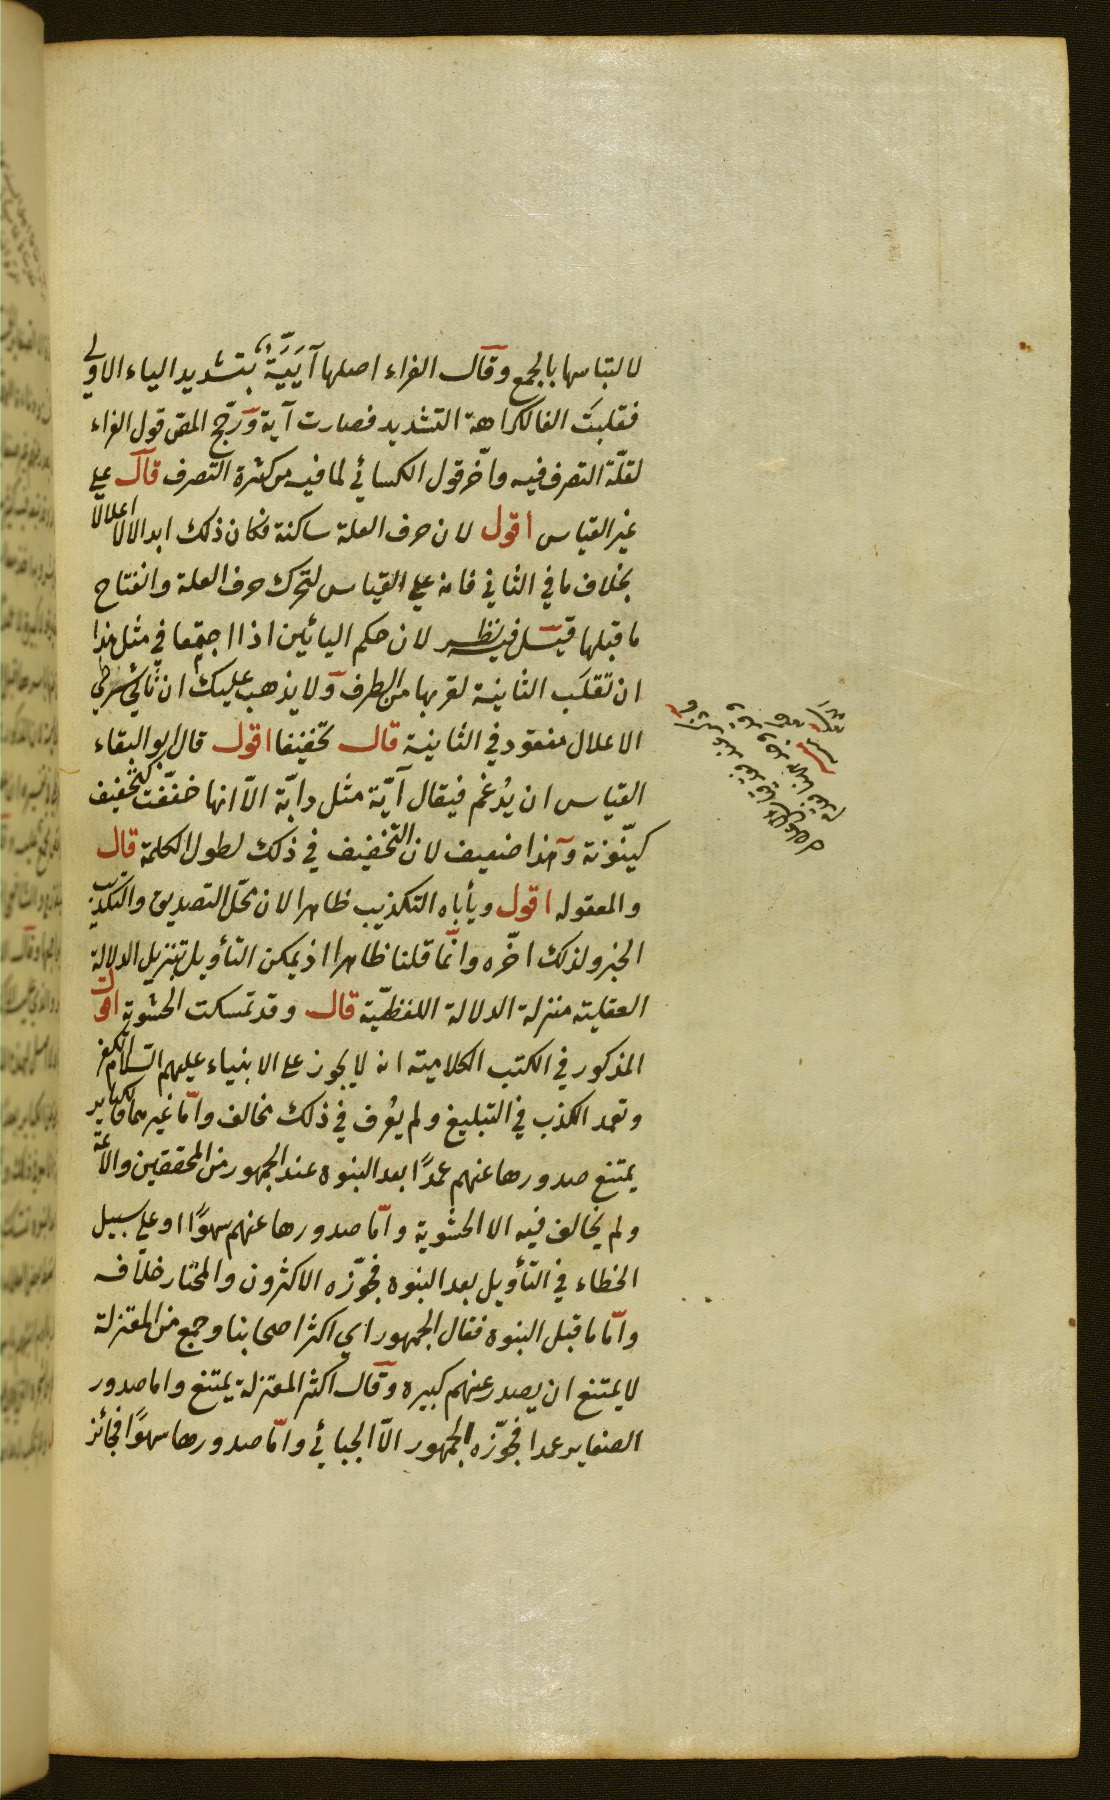 لالتباسها بالجمع وقال الفراء اصلها آيَيَّة بتشديد الياء الاولى
فقلبت الفا لكراهة التشديد فصارت آية ورجّح المص قول الفراء
لقلّة التصرف فيه واخّر قول الكسائي لما فيه من كثرة التصرف قال على
غير القياس اقول لان حرف العلة ساكنة فكان ذلك ابدالا لا اعلالا
بخلاف ما في الثاني فانه على القياس لتحرك حرف العلة وانفتاح
ما قبلها قيل فيه نظر لان حكم اليائين اذا اجتمعا في مثل هذا
ان تقلب الثانية لقربها من الطرف ولا يذهب عليك ان ثاني شرطي
الاعلال مفقود في الثانية قال تخفيفا اقول قال ابو البقاء
القياس ان يُدغم فيقال آيّة مثل دابّة الّا انها خفّفت كتخفيف
كينّونة وهذا ضعيف لان التخفيف في ذلك لطول الكلمة قال
والمعقوله اقول ويأباه التكذيب ظاهرا لان محلّ التصديق والتكذيب
الخبر ولذلك اخّره وانّما قلنا ظاهرا اذ يمكن التأويل بتنزيل الدلالة
العقلية منزلة الدلالة اللفظيّة قال وقد تمسكت الحشوية اقول
المذكور في الكتب الكلامية انه لا يجوز على الانبياء عليهم السّلام الكفر
وتعمد الكذب في التبليغ ولم يعُرف في ذلك مخالف وامّا غيرهما فالكباير
يمتنع صدورها عنهم عمدًا بعد النبوة عند الجمهور من المحققين والائمة
ولم يخالف فيه الا الحشوية وامّا صدورها عنهم سهوًا او على سبيل
الخطاء في التأويل بعد النبوة فجوّزه الاكثرون والمختار خلافه
وامّا ما قبل النبوة فقال الجمهور اي اكثر اصحابنا وجمع من المعتزلة
لا يمتنع ان يصدر عنهم كبيرة وقال اكثر المعتزلة يمتنع واما صدور
الصغاير عمدا فجوّزه الجمهور الّا الجبائي وامّا صدورها سهوًا فجائز